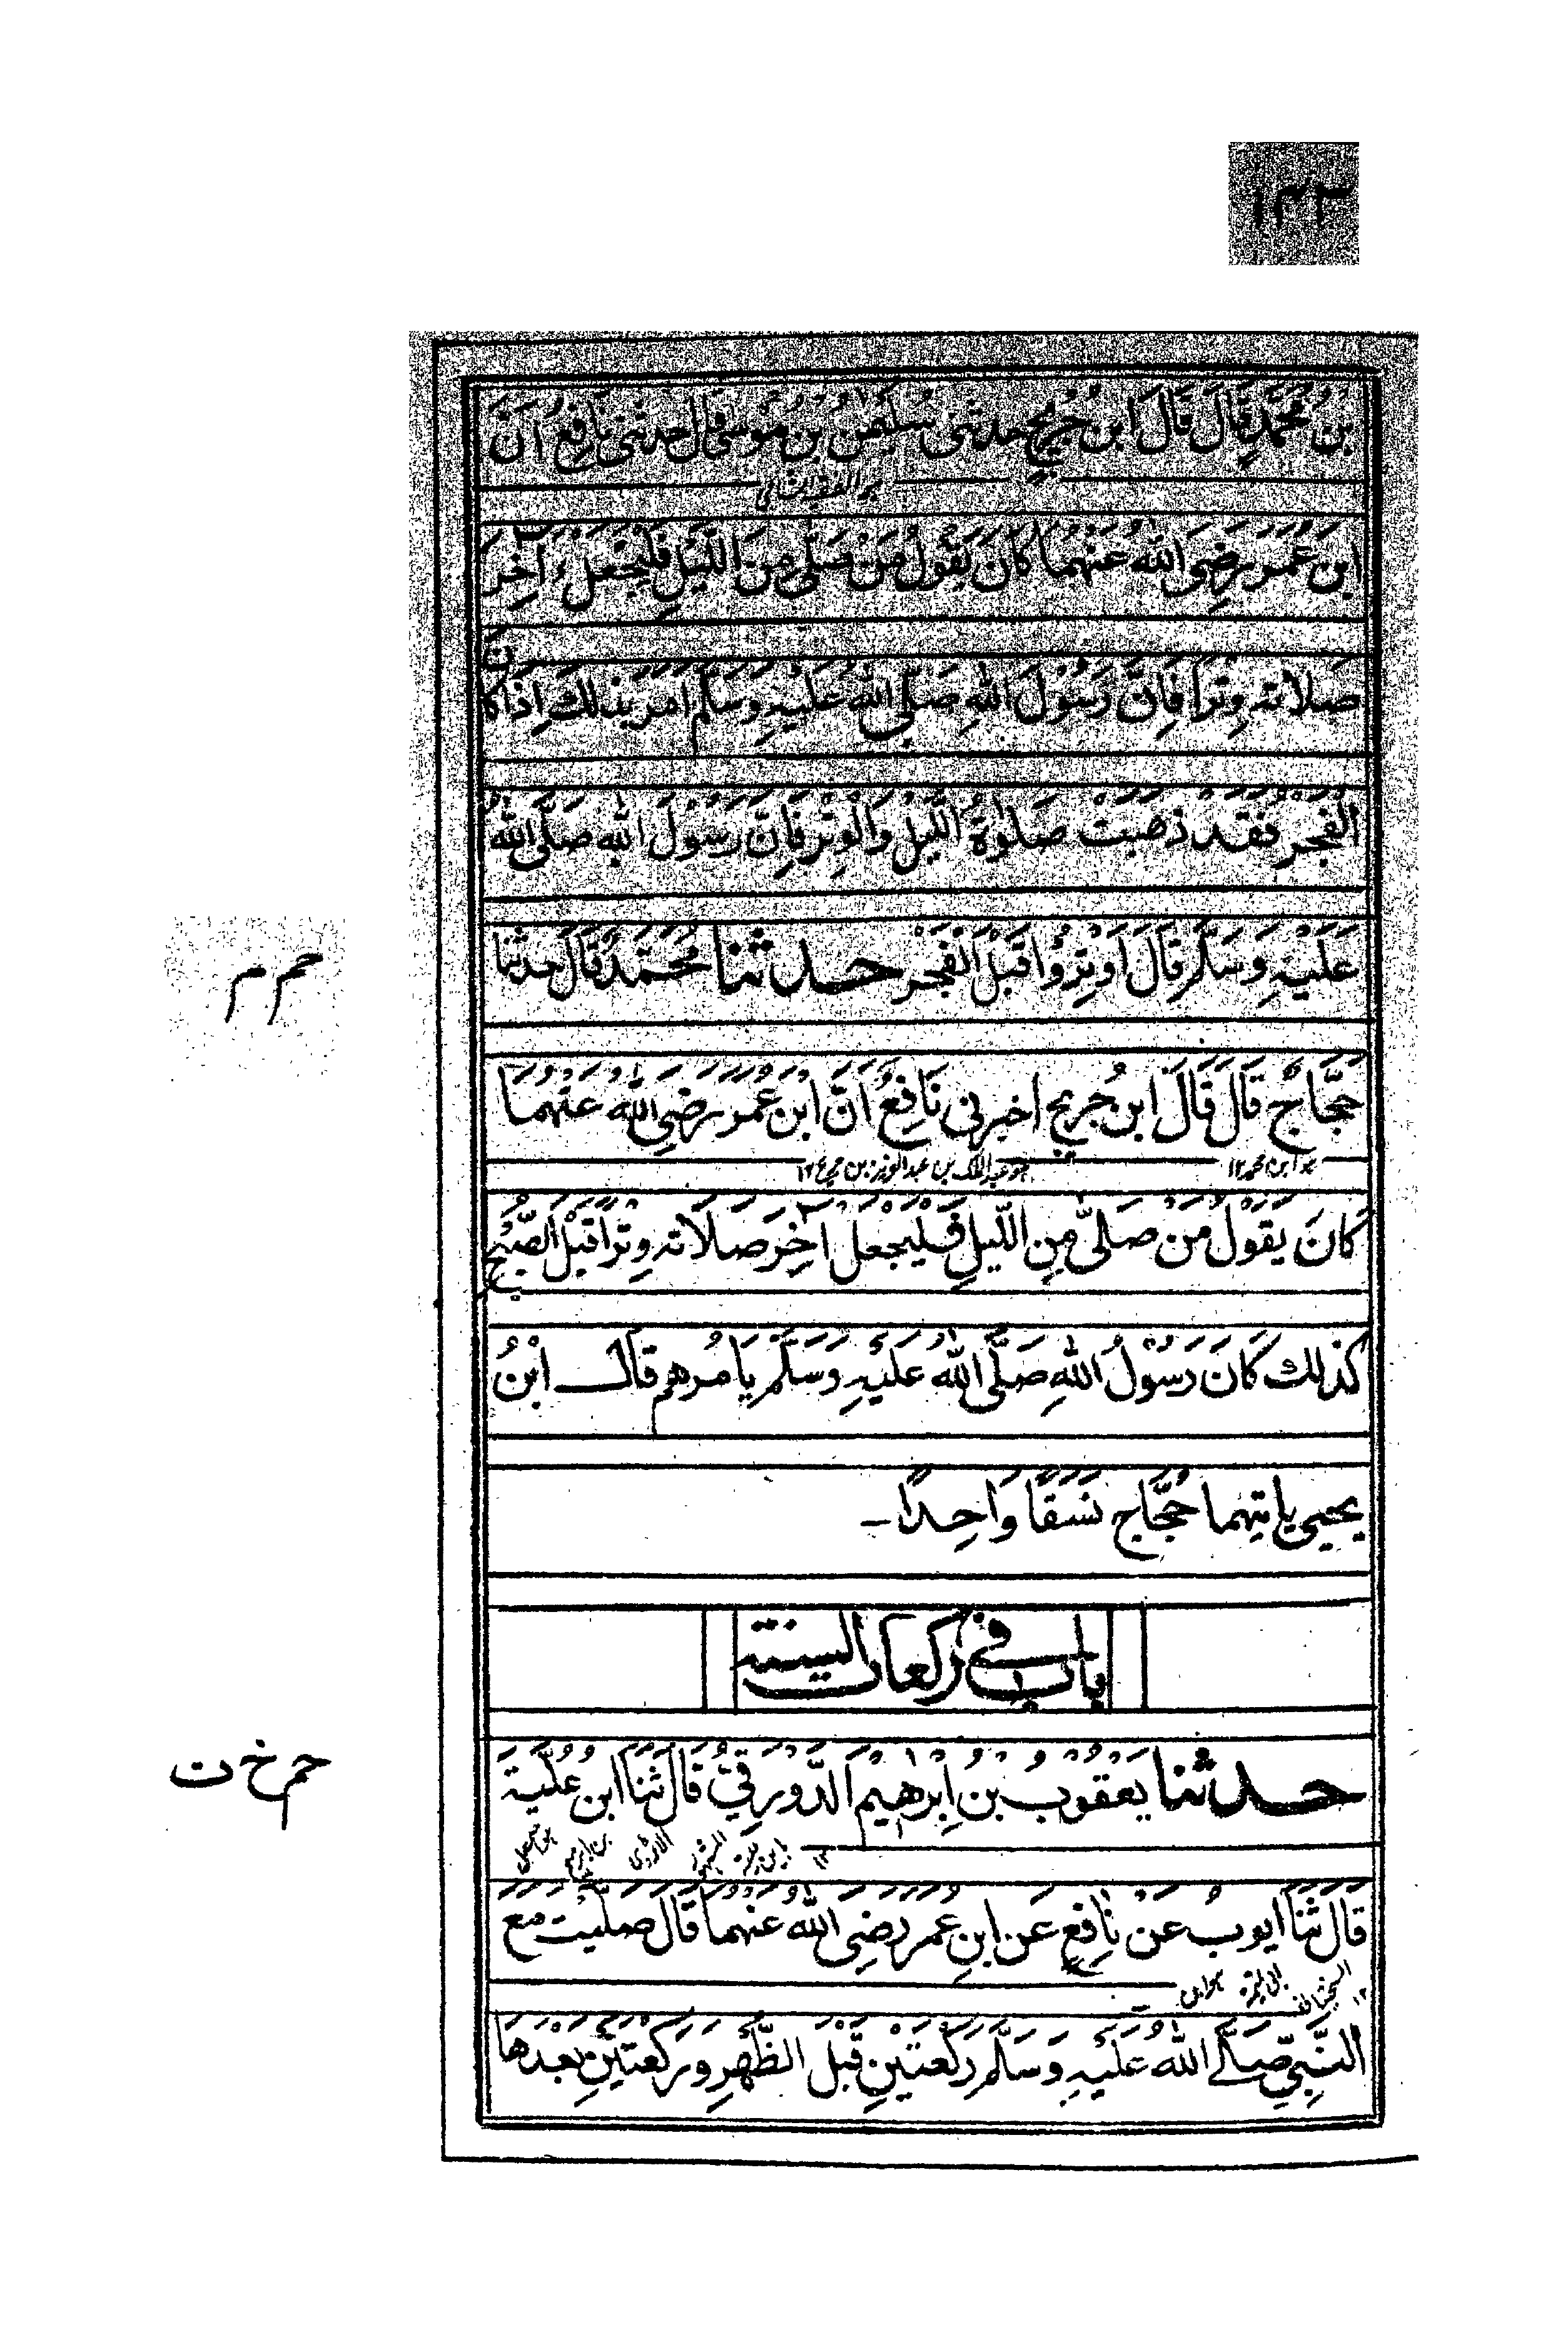 ١٤٣
بْنُ مُحَمَّدٍ قَالَ قَالَ ابْنُ جُرَيْجٍ حدثنى سُلَيْمٰنُ بن مُوْسٰى قَالَ حدثنى نَافِعٌ اَنَّ
ابن عُمَر رَضِىَ اللهُ عَنْهُمَا كَانَ يَقُوْلُ مَنْ صَلّٰى مِنَ اللَّيْلِ فَلْيَجْعَلْ اٰخِرَ
صَلَاتهِ وِتْرًا فَاِنَّ رَسُوْلَ اللهِ صَلَّى اللهُ عَلَيْهِ وَسَلَّم اَمَرَ بِذٰلِكَ اِذَا كَانَ
الْفَجْرُ فَقَدْ ذَهَبَتْ صَلوٰةُ اللَّيْلِ وَالْوِتْرِ فَاِنَّ رَسُوْلَ اللهِ صَلَّى اللهُ
عَلَيْهِ وَسَلَّمَ قَالَ اَوْتِرُوْا قَبْلَ الْفَجْرِ حدثنا مُحَمَّدٌ قَالَ حدثنا
حَجَّاجٌ قَالَ قَالَ ابن جُرَيج اخبرنى نَافِعٌ اَنَّ ابْنَ عُمَرَ رَضِىَ اللهُ عَنْهُمَا
كَانَ يَقُوْلُ مَنْ صَلّٰى مِنَ اللَّيْلِ فَلْيَجْعَلْ اٰخِرَ صَلَاتهِ وِتْرًا قَبْلَ الصُّبْحِ
كذلك كَانَ رَسُوْلُ اللهِ صَلَّى اللهُ عَلَيْهِ وَسَلَّمَ يَامُرهم قَالَ ابْنُ
يحيى ياتيهما حَجَّاج نَسَقًا وَاحِدًا ـ
باب فى ركعات السنة
حم م
حدثنا يَعْقُوْبُ بْنُ اِبْرٰهِيْمَ الدَّوْرَقِىُّ قَالَ ثَنَا ابن عُلَيَّةَ
حم خ ت
قَالَ ثَنَا ايوبُ عَنْ نَافِعٍ عَن ابْنِ عُمَرَ رَضِىَ اللهُ عَنْهُمَا قَالَ صَلَّيْتُ مَعَ
النَّبِىِّ صَلَّے اللهُ عَلَيْهِ وَسَلَّمَ رَكْعَتَيْنِ قَبْلَ الظُّهْرِ وَرَكْعَتَيْنِ بَعْدَهَا